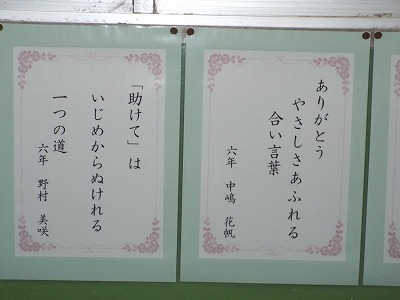 ありがとう
やさしさあふれる
合い言葉
六年 中嶋 花帆
「助けて」は
いじめからぬけれる
一つの道
六年 野村 美咲